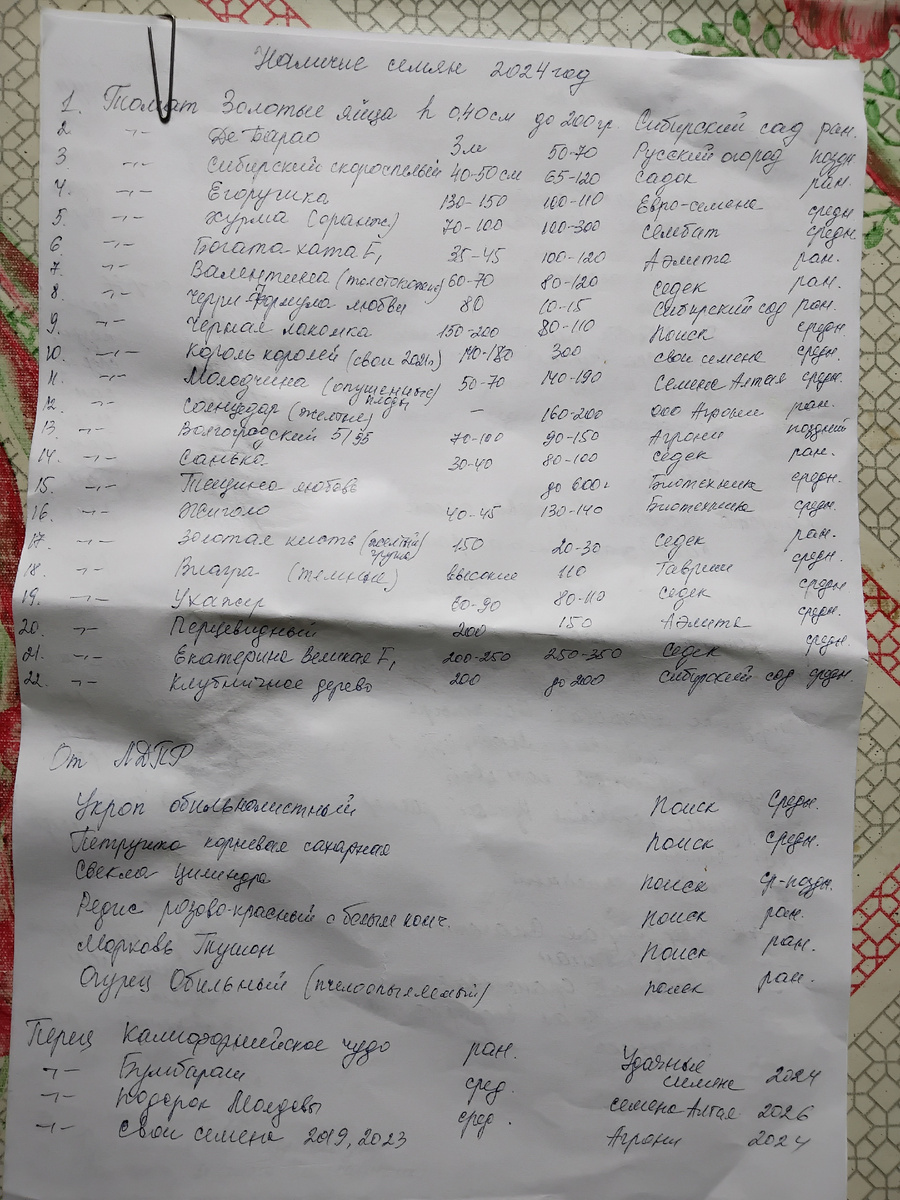 Наличие семян 2024 год
1. Томат Золотые яйца h 0,40 см до 200 гр. Сибирский сад ран.
2 -"- Де Барао 3 м 50-70 Русский огород поздн
3 -"- Сибирский скороспелый 40-50 см 65-120 Садок ран.
4. -"- Егорушка 130-150 100-110 Евро-семена средн
5. -"- Хурма (оранж) 70-100 100-300 Сембат средн
6. -"- Богата хата F1 35-45 100-120 Аэлита ран.
7. -"- Валентина (толстокожие) 60-70 80-120 Седек ран.
8. -"- Черри Формула любви 80 10-15 Сибирский сад ран.
9. -"- Черная лакомка 150-200 80-110 Поиск средн
10. -"- Король королей (свои 2021г) 140-180 300 свои семена средн.
11. -"- Молодчина (опушенные плоды) 50-70 140-190 Семена Алтая средн.
12. -"- (желтые) - 160-200 ООО Агрони ран.
13. -"- Волгоградский 5/95 70-100 90-150 Агрони поздний
14. -"- Санька 30-40 80-100 Седек ран.
15. -"- Тещина любовь до 600 г Биотехника средн.
16. -"- Жиголо 40-45 130-140 Биотехника средн.
17. -"- Золотая кисть (желтая груша) 150 20-30 Седек ран.
18. -"- Виагра (темные) высокие 110 Гавриш средн.
19. -"- Ухажер 60-90 80-110 Седек средн
20. -"- Перцевидный 200 150 Аэлита средн.
21. -"- Екатерина Великая F1 200-250 250-350 Седек средн.
22. -"- Клубничное дерево 200 до 200 Сибирский сад средн.
От ЛДПР
Укроп обильнолистный Поиск Средн.
Петрушка корневая сахарная Поиск средн.
Свекла цилиндра Поиск ср-поздн.
Редис розово-красный с белым конч. Поиск ран.
Морковь Тушон Поиск ран.
Огурец Обильный (пчелоопыляемый) Поиск ран.
Перец Калифорнийское чудо ран. Удачные семена 2024
-"- Бумбараш сред. Семена Алтая 2026
-"- Подарок Молдовы сред. Агрони 2024
-"- свои семена 2019, 2023